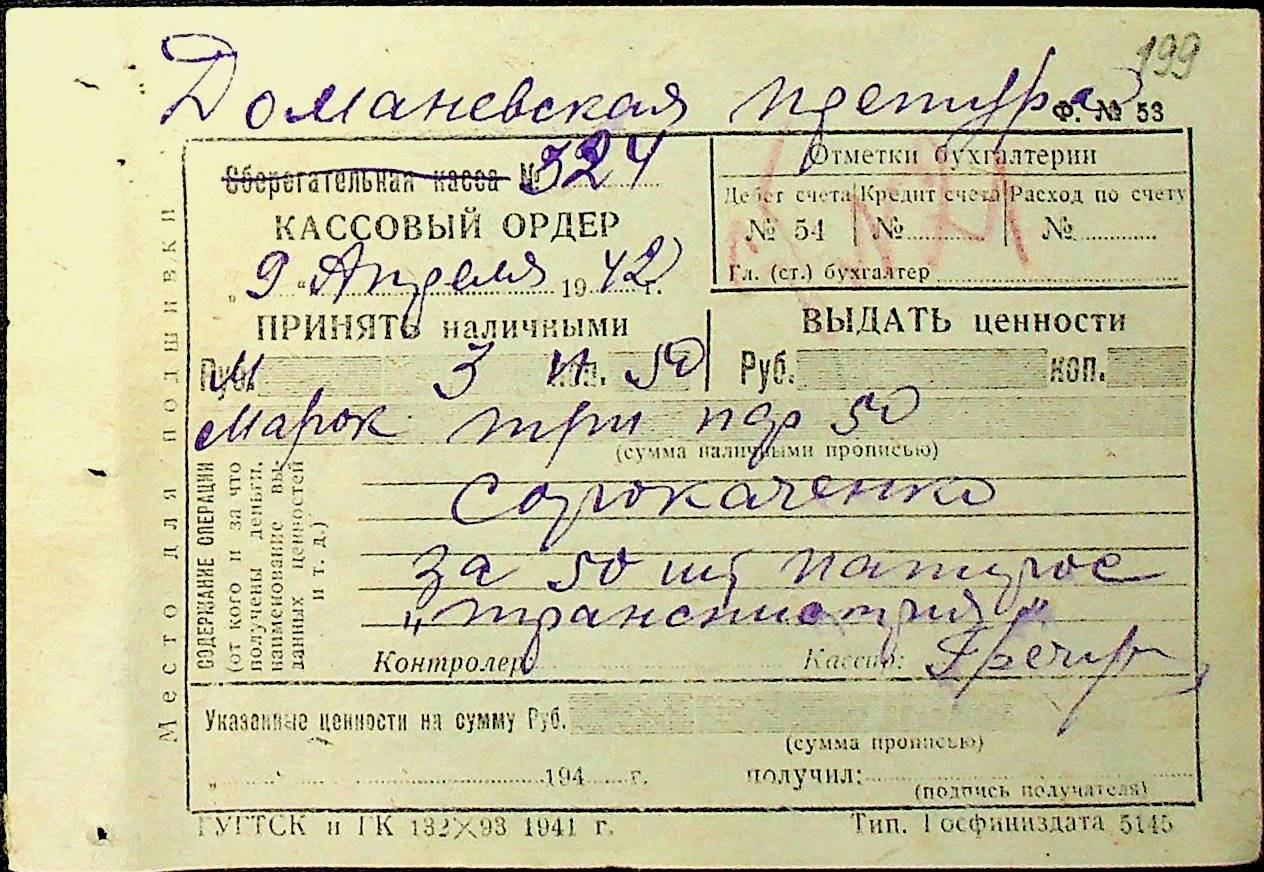 199
Доманевская претура
Ф. № 53
Сберегательная касса № 324
КАССОВЫЙ ОРДЕР
„ 9 “ Апреля 1942 г.
Отметки бухгалтерии
Дебет счета Кредит счета Расход по счету
№ 54 № №
Гл. (ст.) бухгалтер
ПРИНЯТЬ наличными
Руб. М 3 коп. 50
Марок три 50
(сумма наличными прописью)
ВЫДАТЬ ценности
Руб. коп.
Место для подшивки
СОДЕРЖАНИЕ ОПЕРАЦИИ
(от кого и за что
получены деньги,
наименование вы-
данных ценностей
и т. д.)
Сорокаченко
за 50 шт папирос
„транснистрия“
Контролер: Кассир:
Указанные ценности на сумму Руб.
(сумма прописью)
„ “ 194 г. получил:
(подпись получателя)
ГУГТСК и ГК 132X93 1941 г. Тип. Госфиниздата 5145